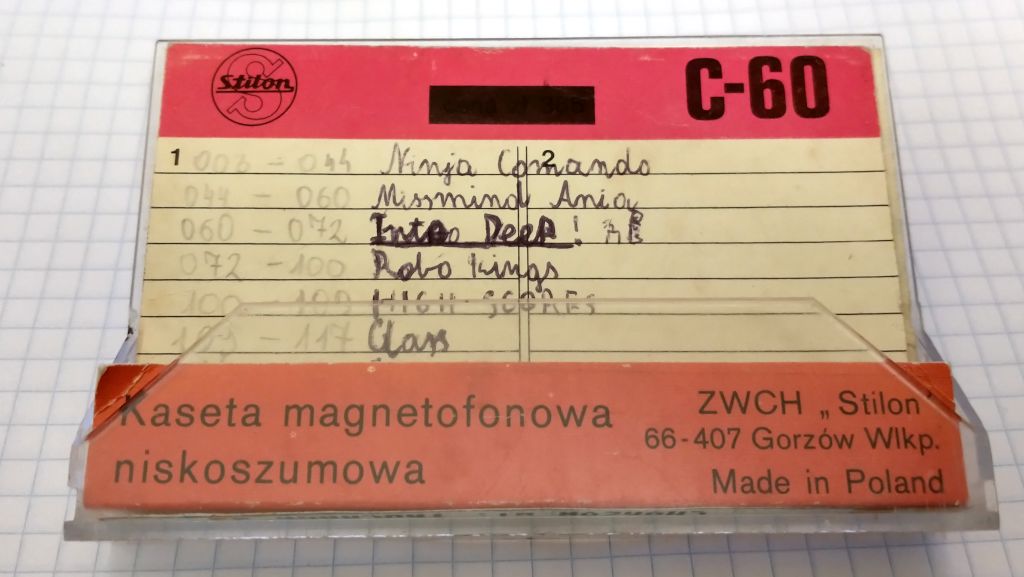 Stilon
C-60
1 2
003 - 044 Ninja Comando
044 - 060 Missmind Ania
060 - 072 Into Deep!
072 - 100 Robo kings
100 - 109 HIGH SCORES
109 - 117 Class
Kaseta magnetofonowa
niskoszumowa
ZWCH „Stilon”
66-407 Gorzów Wlkp.
Made in Poland